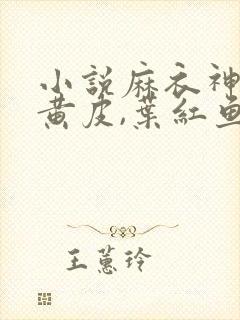 小說麻衣神
黄皮,葉紅魚
王蕙玲